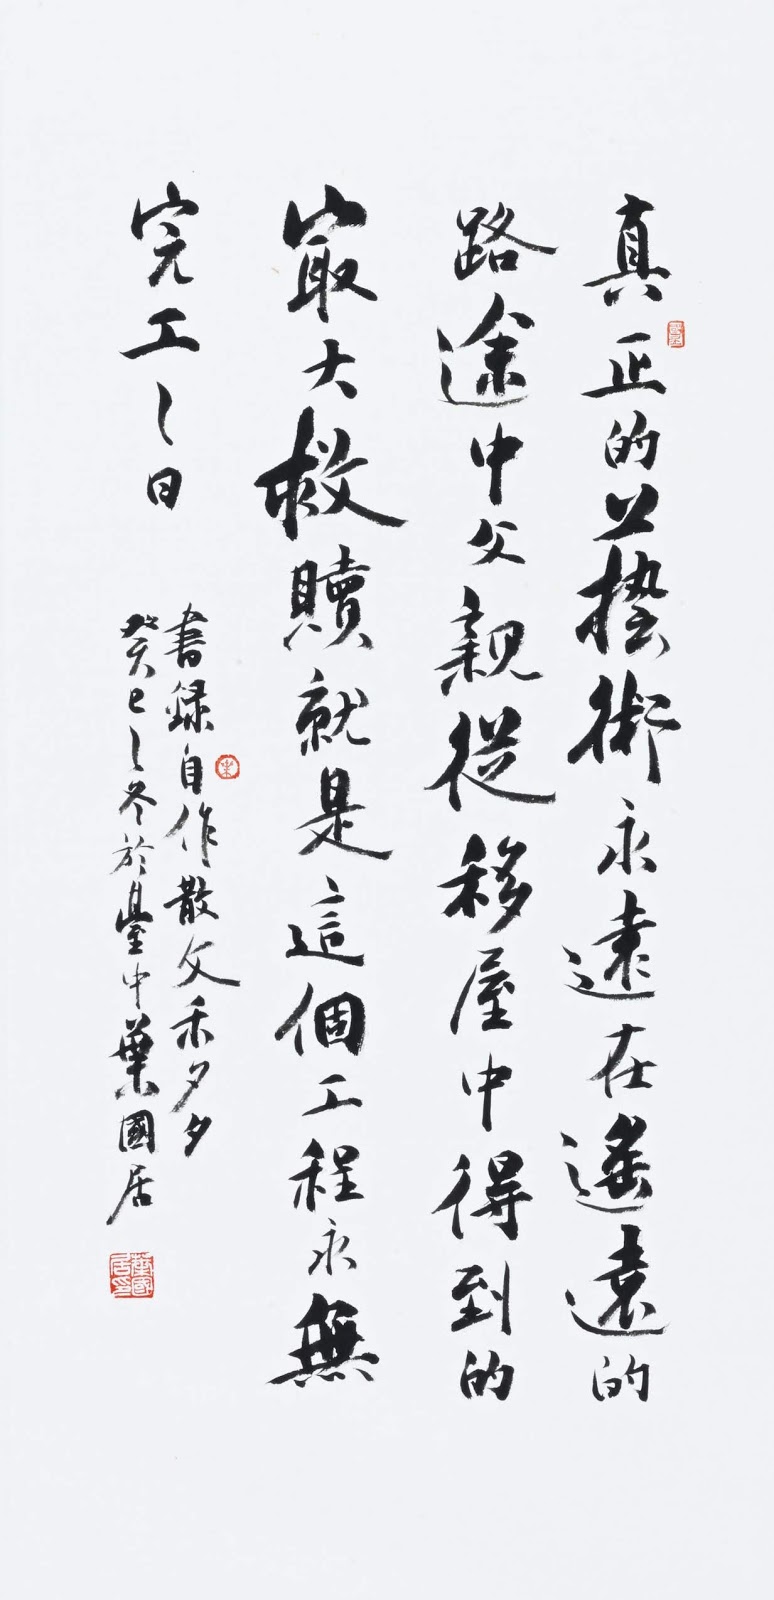 真正的藝術永遠在遙遠的
路途中父親從移屋中得到的
最大救贖就是這個工程永無
完工之日
書錄自作散文禾夕夕
癸巳之冬於臺中葉國居
葉國居印